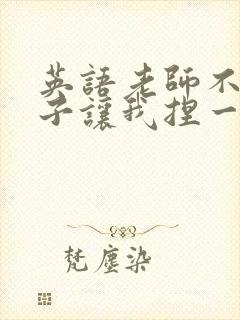 英語老師不
子讓我捏一
梵塵染